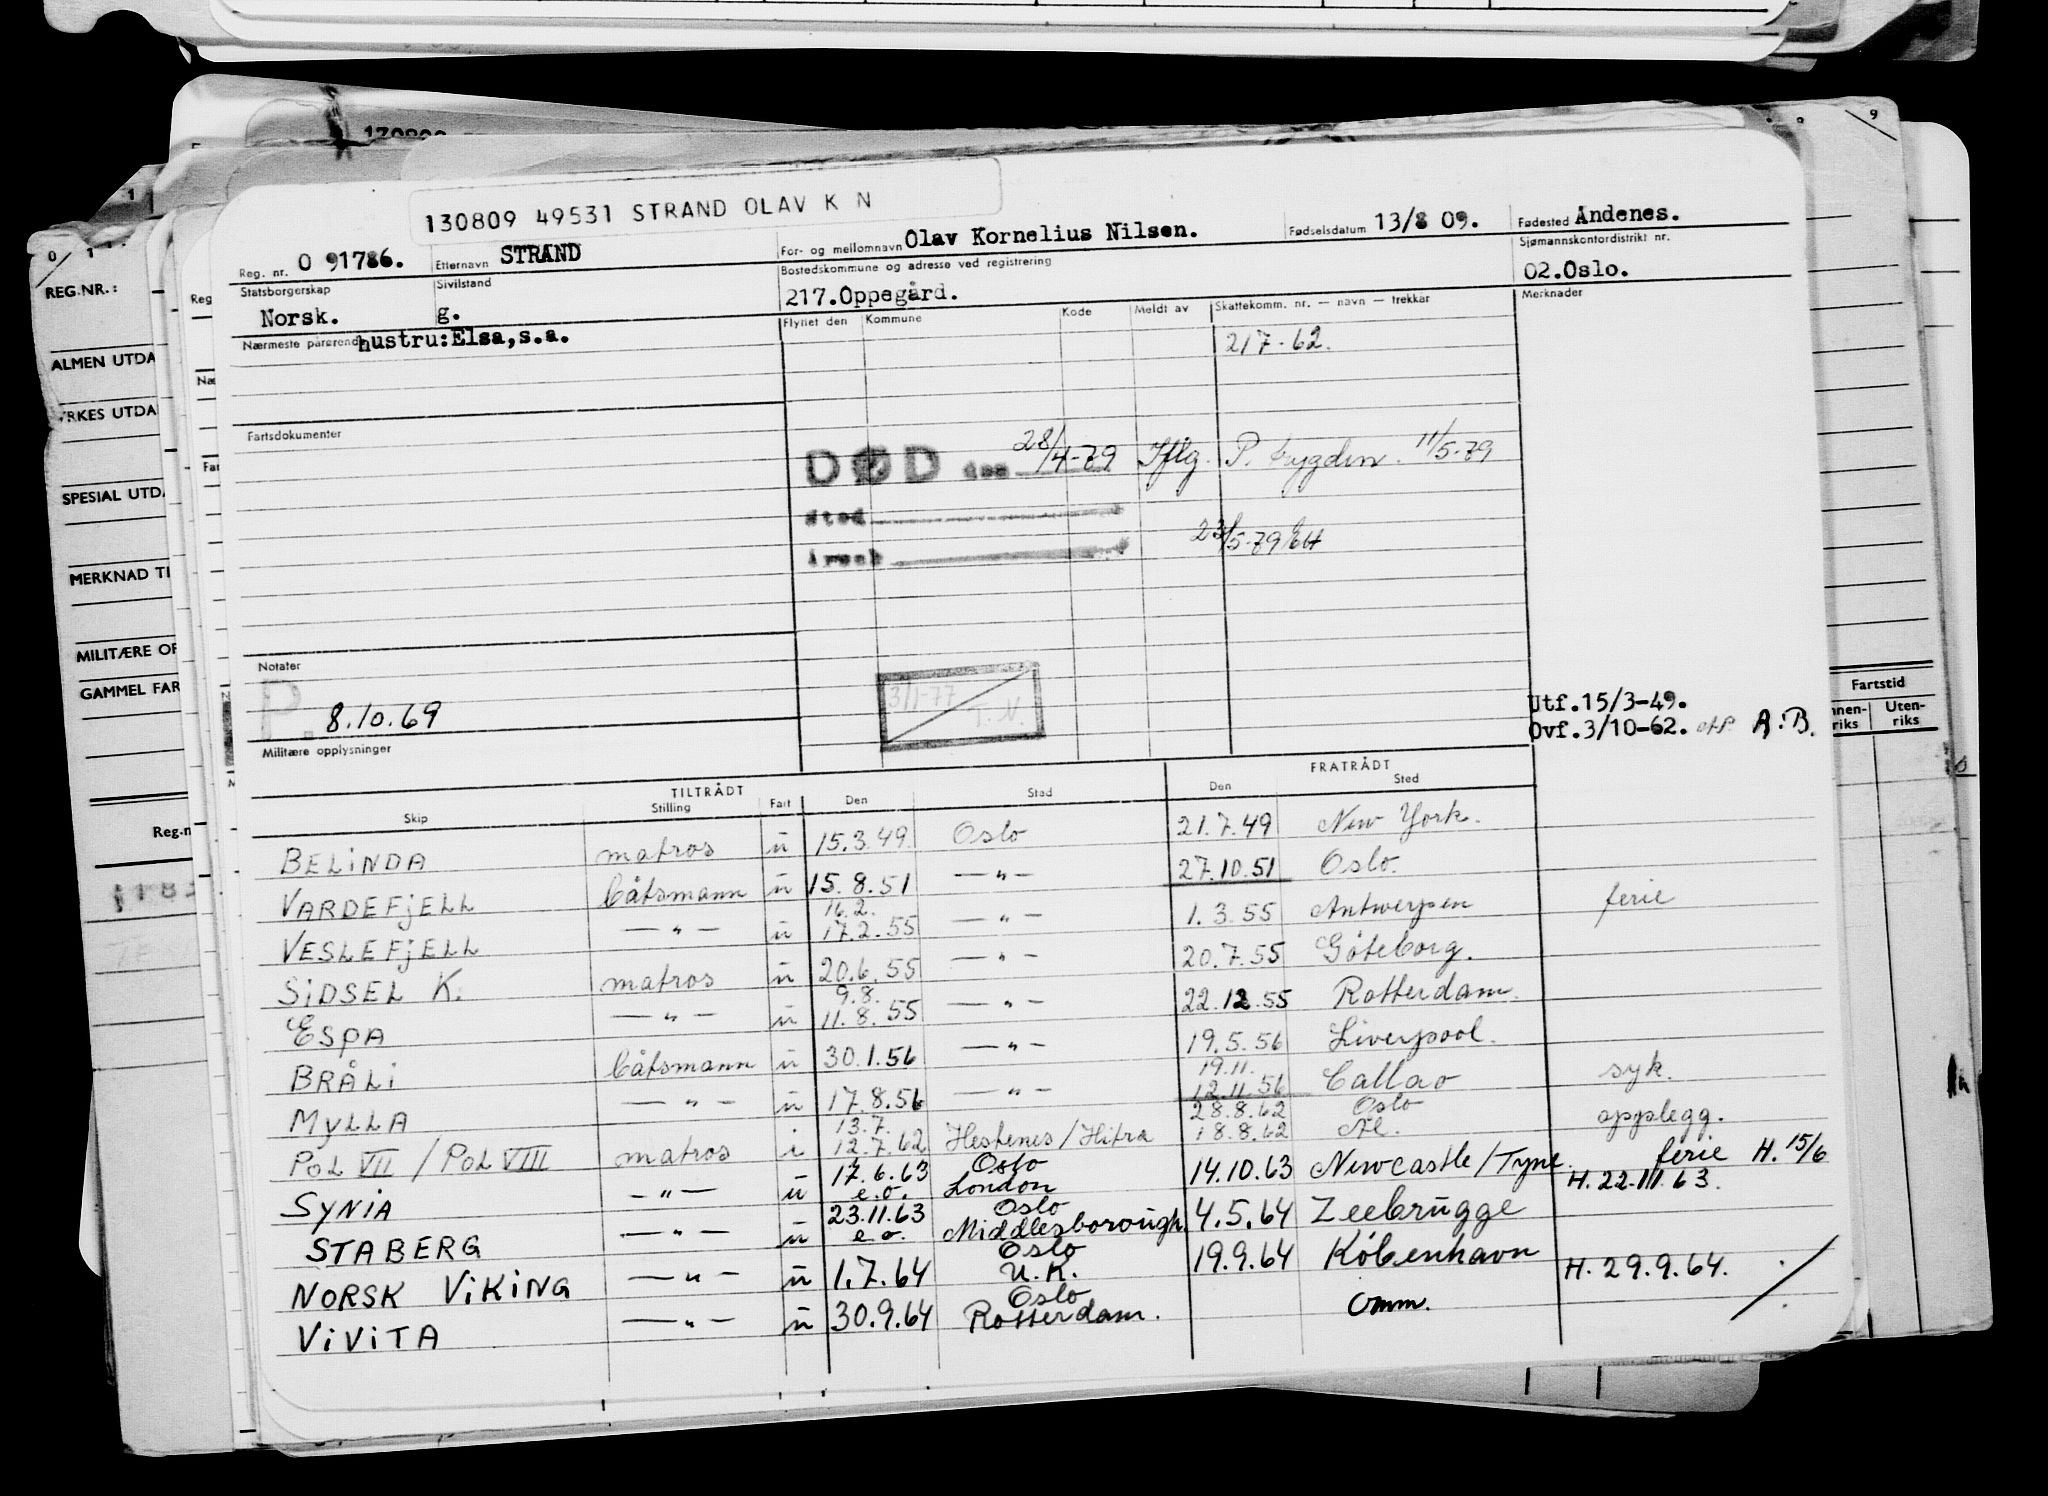 130809 49531 STRAND OLAV K N
Reg. nr. O 91786. Etternavn STRAND For- og mellomnavn Olav Kornelius Nilsen. Fødselsdatum 13/8 09. Fødested Andenes.
Statsborgerskap Norsk. Sivilstand g. Bostedskommune og adresse ved registrering 217.Oppegård. Sjømannskontordistrikt nr. 02.Oslo.
Nærmeste pårørende hustru:Elsa,s.a. Flyttet den Kommune Kode Meldt av Skattekomm. nr. — navn — trekkår Merknader
217-62.
Fartsdokumenter
DØD den 28/4-79 Iflg. P. trygden. 11/5-79
Sted
Årsak 23/5-79
Notater
P. 8.10.69
3/1-77 T.N.
Utf.15/3-49.
Ovf.3/10-62. A.B.
Militære opplysninger
TILTRÅDT FRATRÅDT
Skip Stilling Fart Den Sted Den Sted
BELINDA matros u 15.3.49 Oslo 21.7.49 New York.
VARDEFJELL båtsmann u 15.8.51 —"— 27.10.51 Oslo.
VESLEFJELL —"— u 16.2. 17.2.55 —"— 1.3.55 Antwerpen ferie
SIDSEL K. matros u 20.6.55 —"— 20.7.55 Göteborg.
ESPA —"— u 9.8. 11.8.55 —"— 22.12.55 Rotterdam.
BRÅLI båtsmann u 30.1.56 —"— 19.5.56 Liverpool.
MYLLA —"— u 17.8.56 —"— 19.11. 12.11.56 Callao syk.
POL VII / POL VIII matros i 13.7. 12.7.62 Hestenes/Hitra 28.8.62 18.8.62 Oslo opplegg.
SYNIA —"— u 17.6.63 e.o. Oslo London 14.10.63 Newcastle/Tyne. ferie H. 15/6
H. 22.III.63.
STABERG —"— u 23.11.63 e.o. Oslo Middlesborough. 4.5.64 Zeebrugge
NORSK VIKING —"— u 1.7.64 Oslo U.K. 19.9.64 København
H. 29.9.64.
VIVITA —"— u 30.9.64 Oslo Rotterdam. Omm.
REG.NR.:
ALMEN UTDA
YRKES UTDA
SPESIAL UTDA
MERKNAD TI
MILITÆRE OP
GAMMEL FAR
Reg.n
Fartstid
Uten-
riks